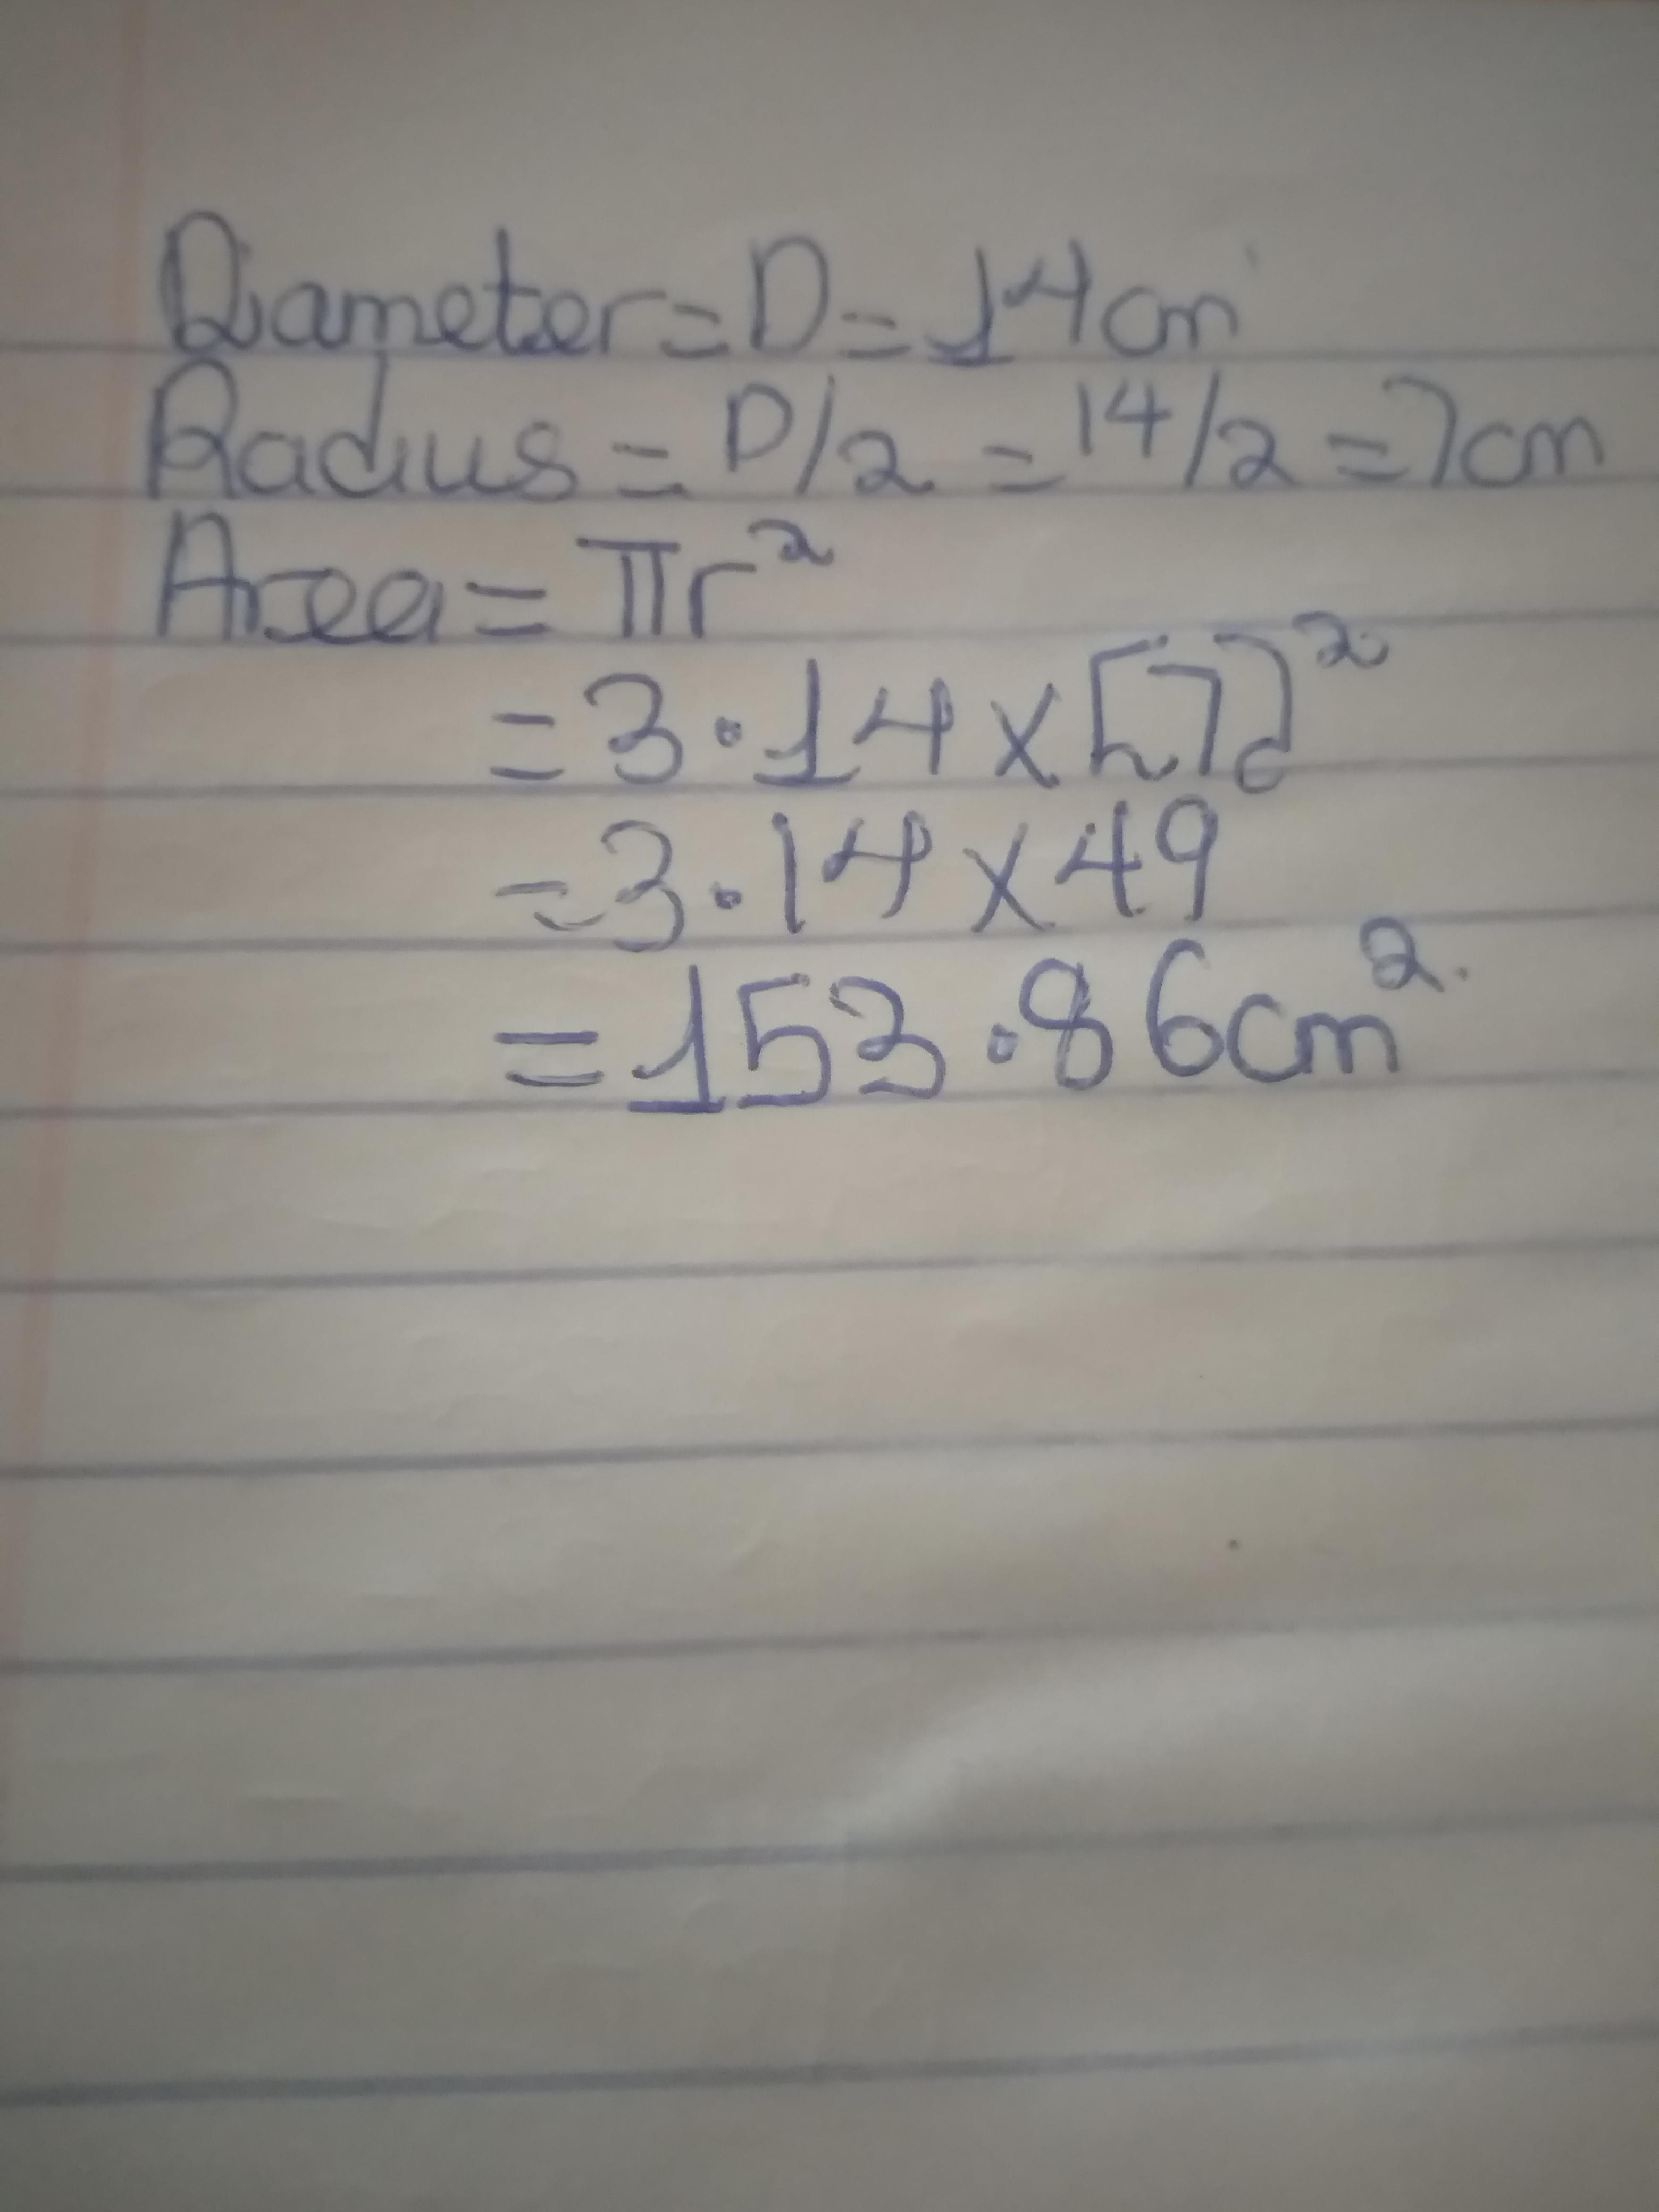 Diameter = D = 14cm
Radius = D/2 = 14/2 = 7cm
Area = πr²
= 3.14 x [7]²
= 3.14 x 49
= 153.86cm².